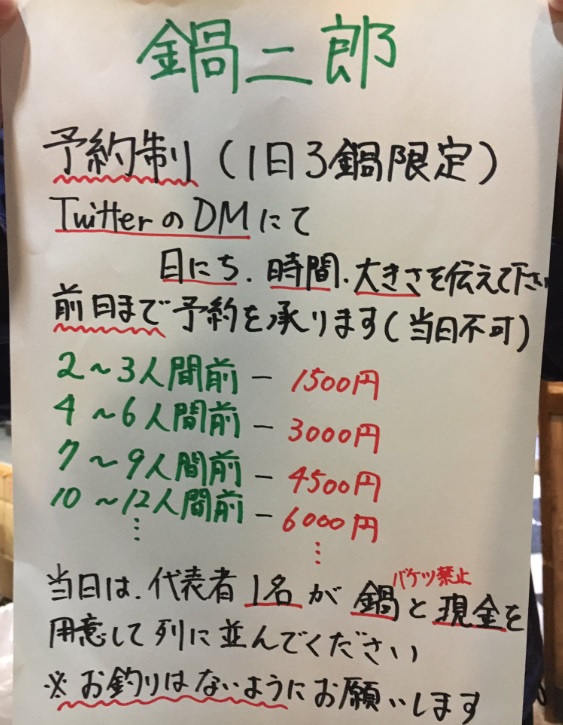 鍋二郎
予約制(1日3鍋限定)
TwitterのDMにて
日にち.時間.大きさを伝えて下さい
前日まで予約を承ります(当日不可)
2~3人間前-1500円
4~6人間前-3000円
7~9人間前-4500円
10~12人間前-6000円
⋮ ⋮
バケツ禁止
当日は.代表者1名が鍋と現金を
用意して列に並んでください
※お釣りはないようにお願いします